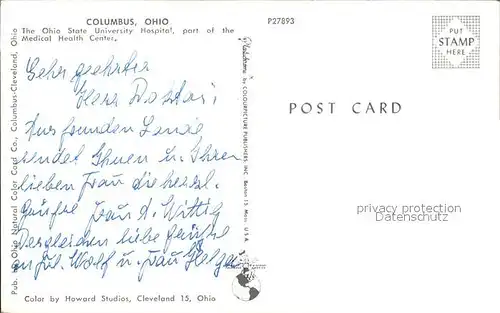 COLUMBUS, OHIO
The Ohio State University Hospital, part of the
Medical Health Center.
P27893
PUT
STAMP
HERE
POST CARD
Sehr geehrter
Herr Doktor!
Aus fremden Lande
sendet Ihnen u. Ihrer
lieben Frau die herzl.
Grüße Frau A. Wittig
Desgleichen liebe Grüße
an Wolf u. Frau Helga
Plastichrome by COLOURPICTURE PUBLISHERS, INC. Boston 15, Mass., U.S.A.
Pub. by Ohio Natural Color Card Co., Columbus-Cleveland, Ohio
Color by Howard Studios, Cleveland 15, Ohio
privacy protection
Datenschutz